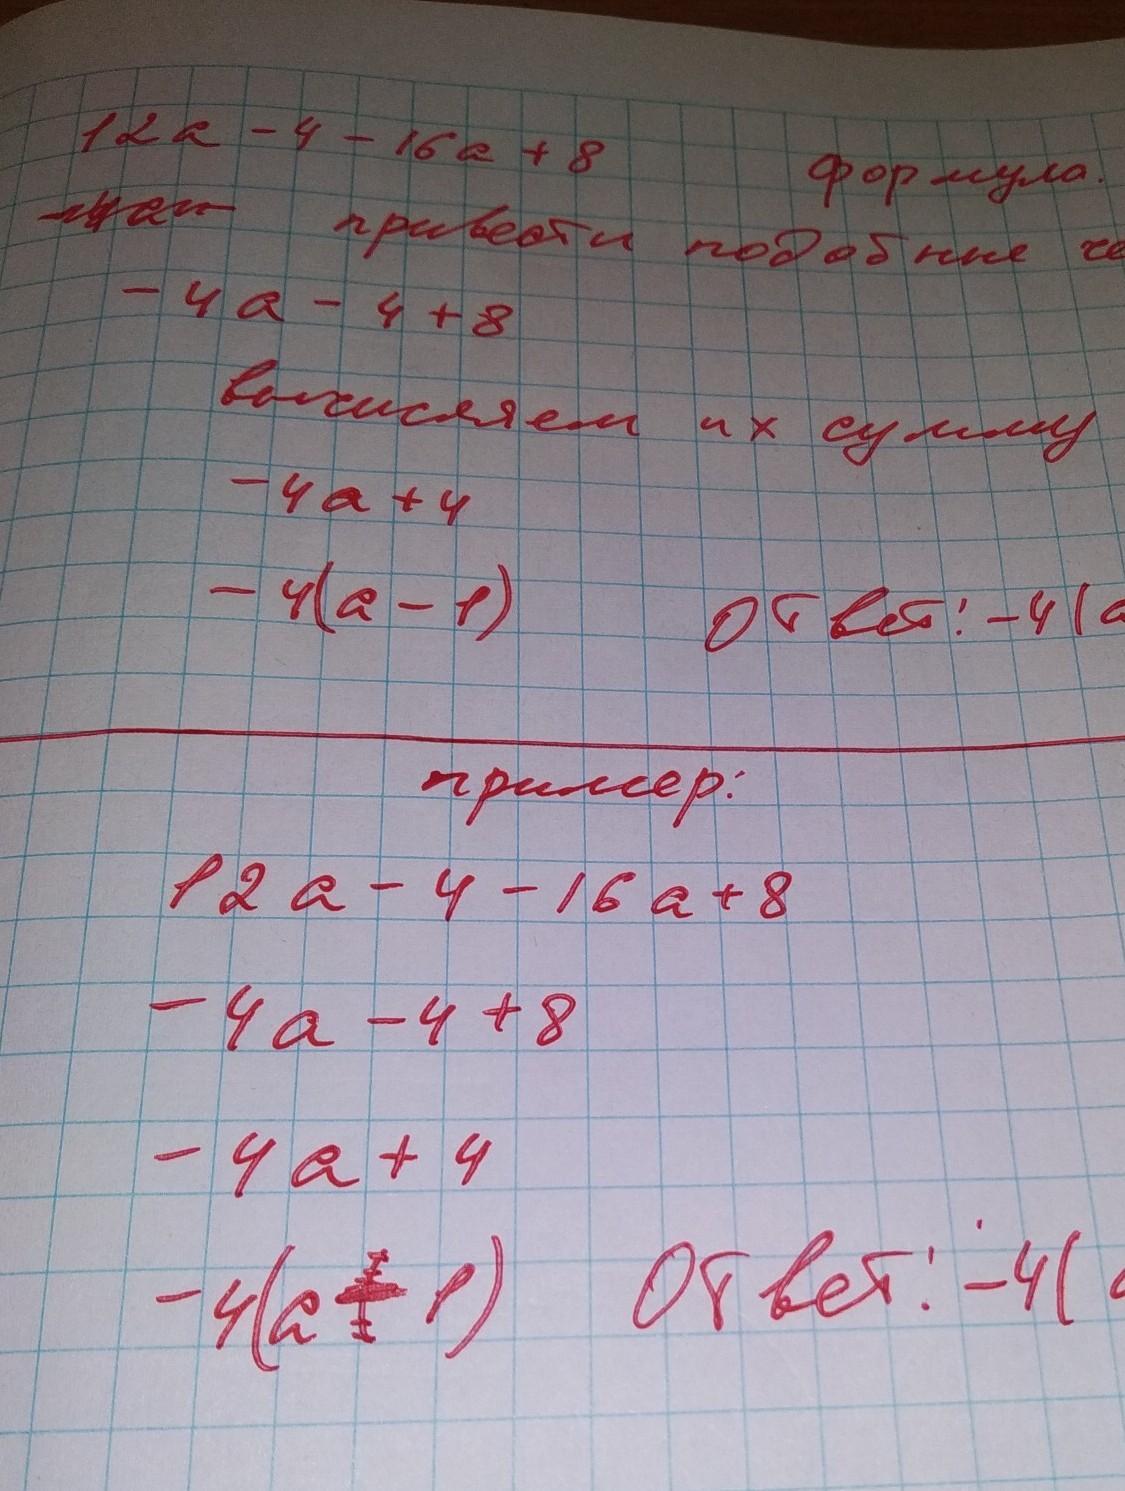 12а - 4 - 16а + 8 формула.
привести подобные
- 4а - 4 + 8
вычисляем их сумму
- 4а + 4
- 4(а - 1) Ответ: - 4(а
пример:
12а - 4 - 16а + 8
- 4а - 4 + 8
- 4а + 4
- 4(а - 1) Ответ: - 4(а